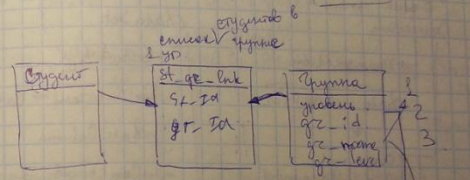 список студентов в
группе
1 ур
Студент
St_gr_lnk
St_Id
gr_Id
Группа
уровень
gr_id
gr_name
gr_lev
1
2
3.